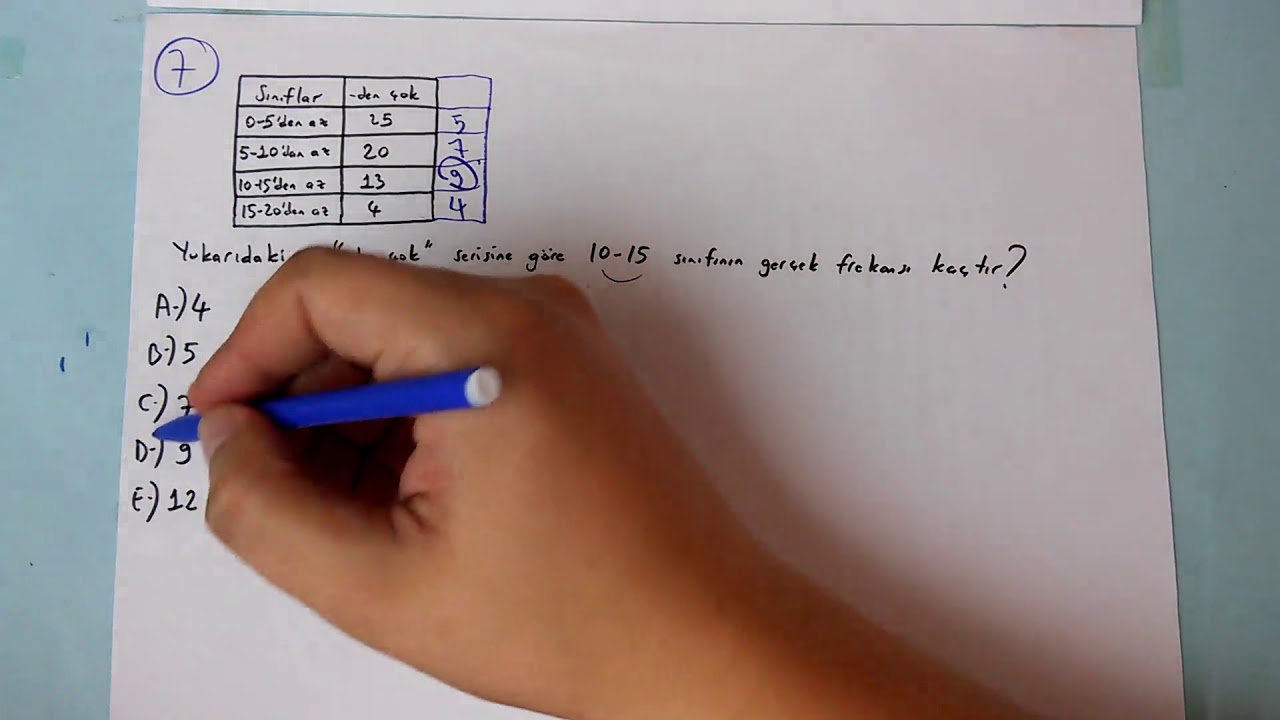 7
Sınıflar -den çok
0-5'den az 25 5
5-10'dan az 20 7
10-15'den az 13 9
15-20'den az 4 4
Yukarıdaki çok" serisine göre 10-15 sınıfının gerçek frekansı kaçtır?
A-) 4
B-) 5
C-) 7
D-) 9
E-) 12